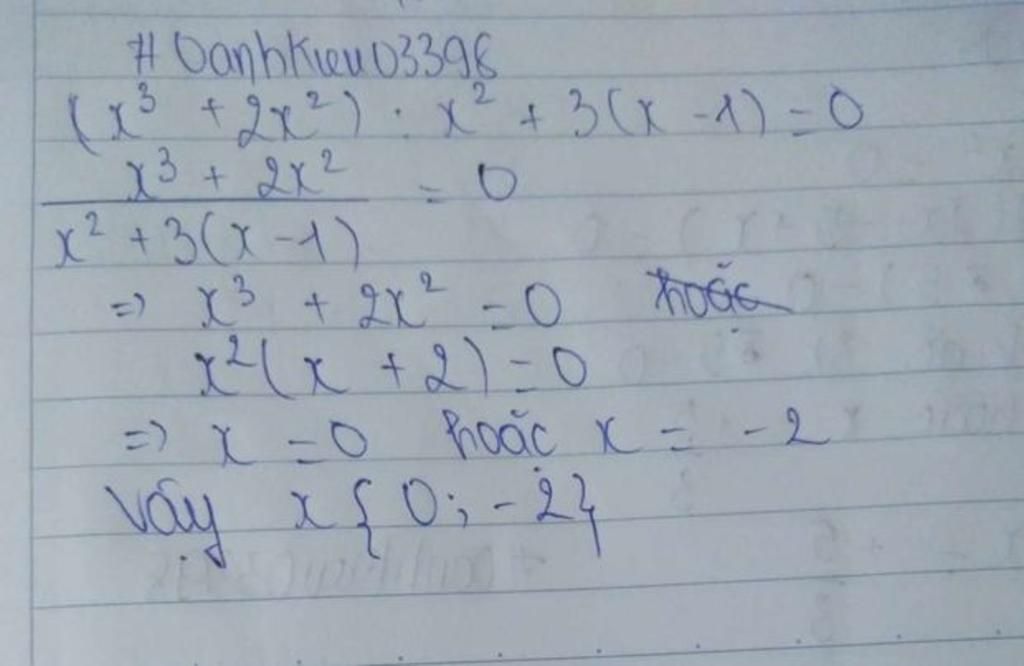 #Oanhkieu03398
(x³ + 2x²) : x² + 3(x - 1) = 0
x³ + 2x² / x² + 3(x - 1) = 0
=> x³ + 2x² = 0 hoặc
x²(x + 2) = 0
=> x = 0 hoặc x = -2
Vậy x { 0 ; -2 }